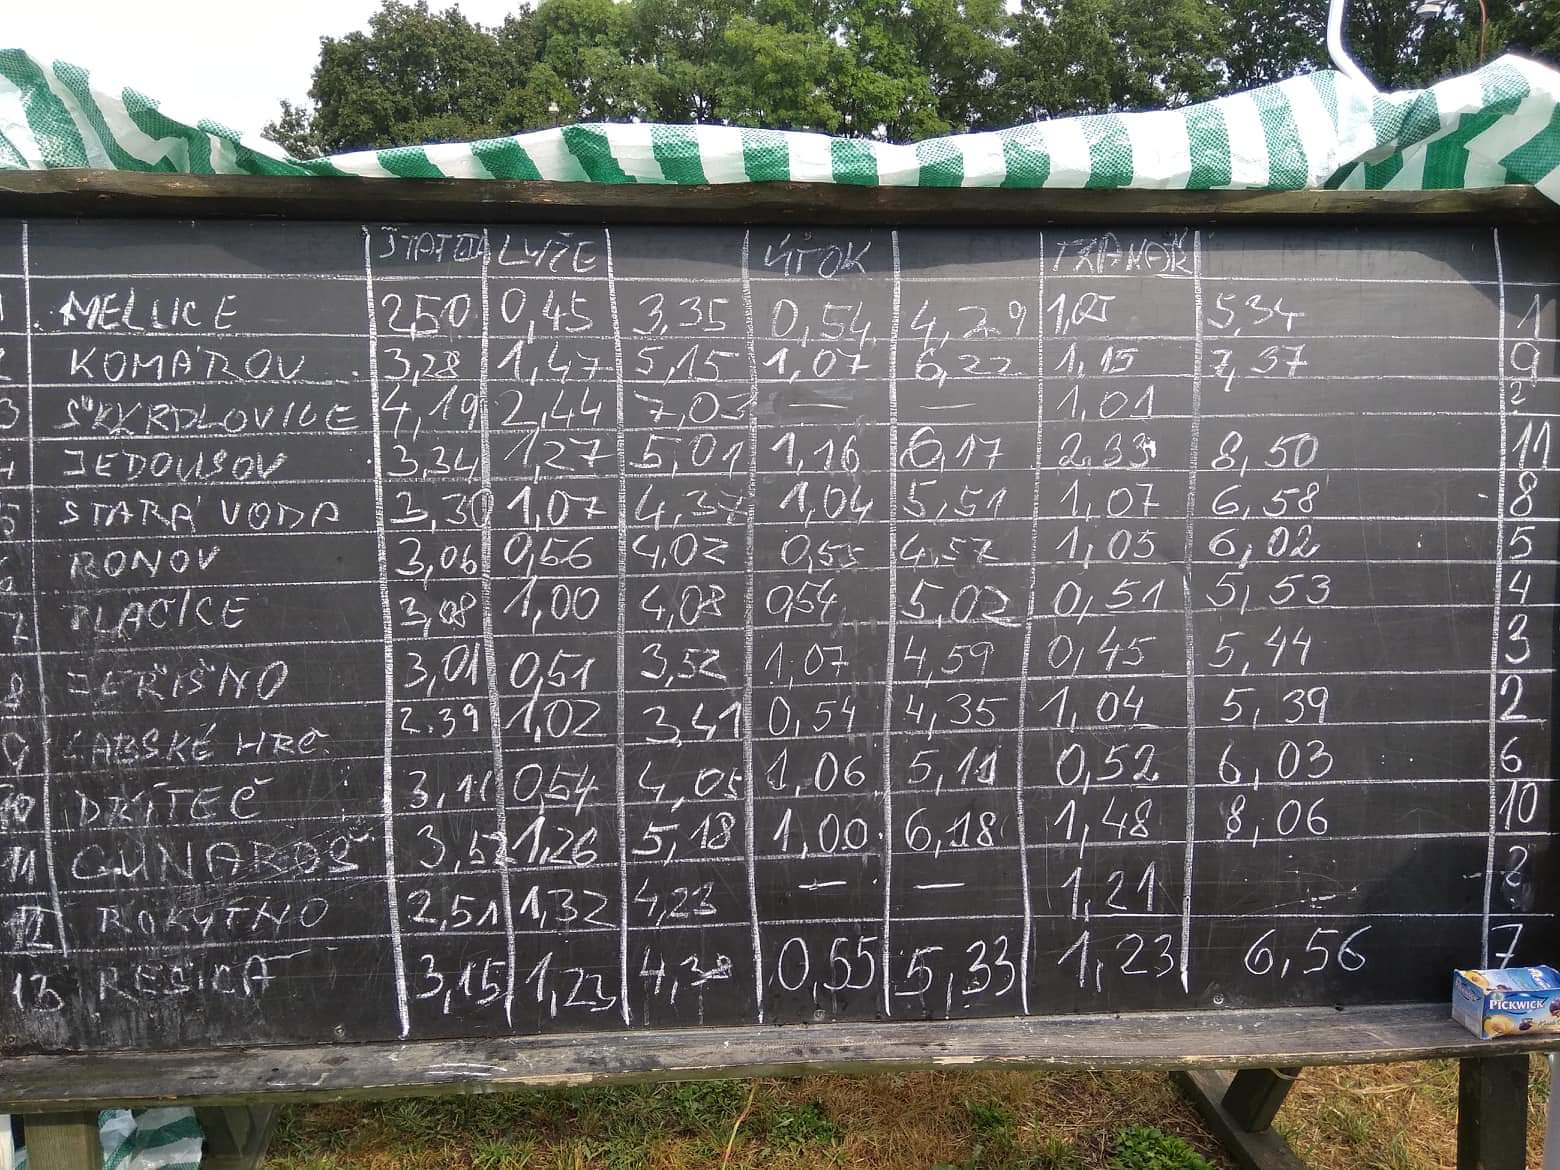 ŠTAFETA LYŽE ÚTOK TRAKAŘ
MELLICE 2,50 0,45 3,35 0,54 4,29 1,05 5,34 1
KOMÁROV 3,28 1,47 5,15 1,07 6,22 1,15 7,37 9
3 ŠKRDLOVICE 4,19 2,44 7,03 — — 1,01 2
4 JEDOUSOV 3,34 1,27 5,01 1,16 6,17 2,33 8,50 11
5 STARÁ VODA 3,30 1,07 4,37 1,04 5,51 1,07 6,58 8
RONOV 3,06 0,56 4,02 0,55 4,57 1,05 6,02 5
7 PLAČICE 3,08 1,00 4,08 0,54 5,02 0,51 5,53 4
8 JEŘIŠNO 3,01 0,51 3,52 1,07 4,59 0,45 5,44 3
9 LABSKÉ HRČ 2.39 1,02 3,41 0,54 4,35 1,04 5,39 2
10 DŘÍTEČ 3,11 0,54 4,05 1,06 5,11 0,52 6,03 6
11 GUNAROŠ 3,52 1,26 5,18 1,00 6,18 1,48 8,06 10
12 ROKYTNO 2,51 1,32 4,23 — — 1,21 — 2
13 ŘEŠICA 3,15 1,23 4,38 0,55 5,33 1,23 6,56 7
PICKWICK